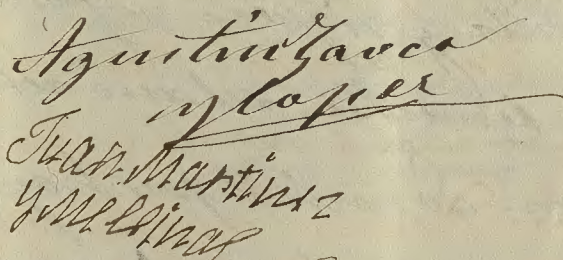 Agustin Garca
y Lopez
Juan Martinez
y Molinas